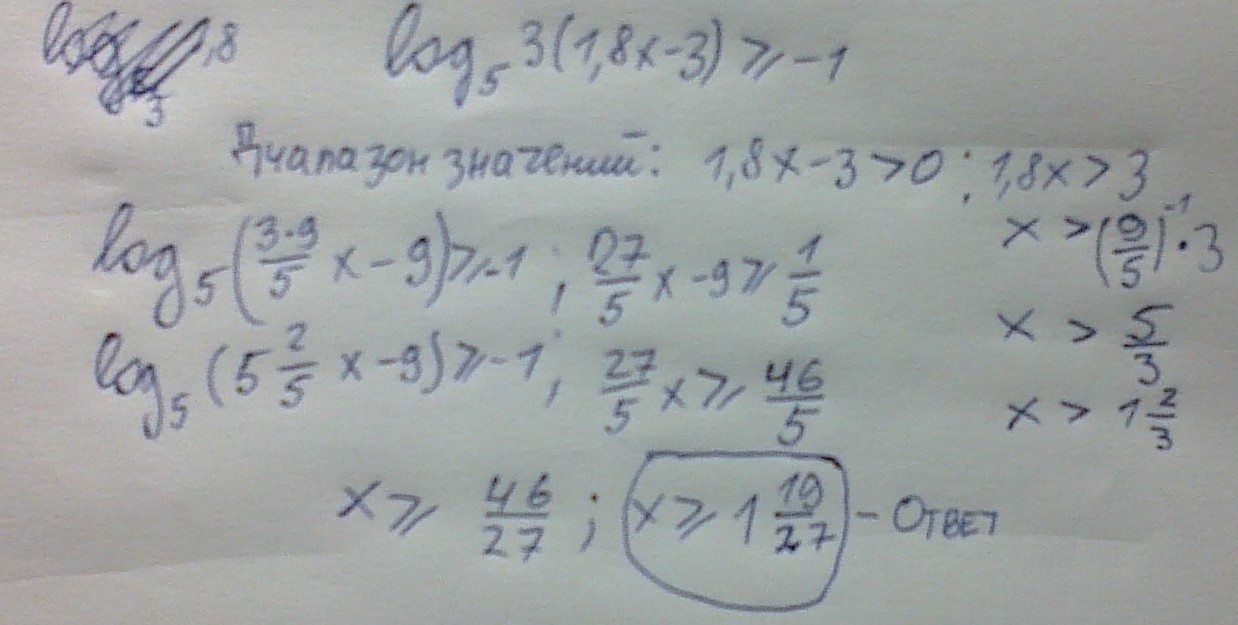 ,8
3
log₅ 3(1,8x-3) ⩾ -1
Диапазон значений: 1,8x-3>0; 1,8x>3
log₅(3·9/5 x-9)⩾-1; 27/5 x-9⩾1/5
x>(9/5)⁻¹·3
log₅(5 2/5 x-9)⩾-1; 27/5 x⩾46/5
x > 5/3
x > 1 2/3
x⩾ 46/27; x⩾1 19/27 - Ответ